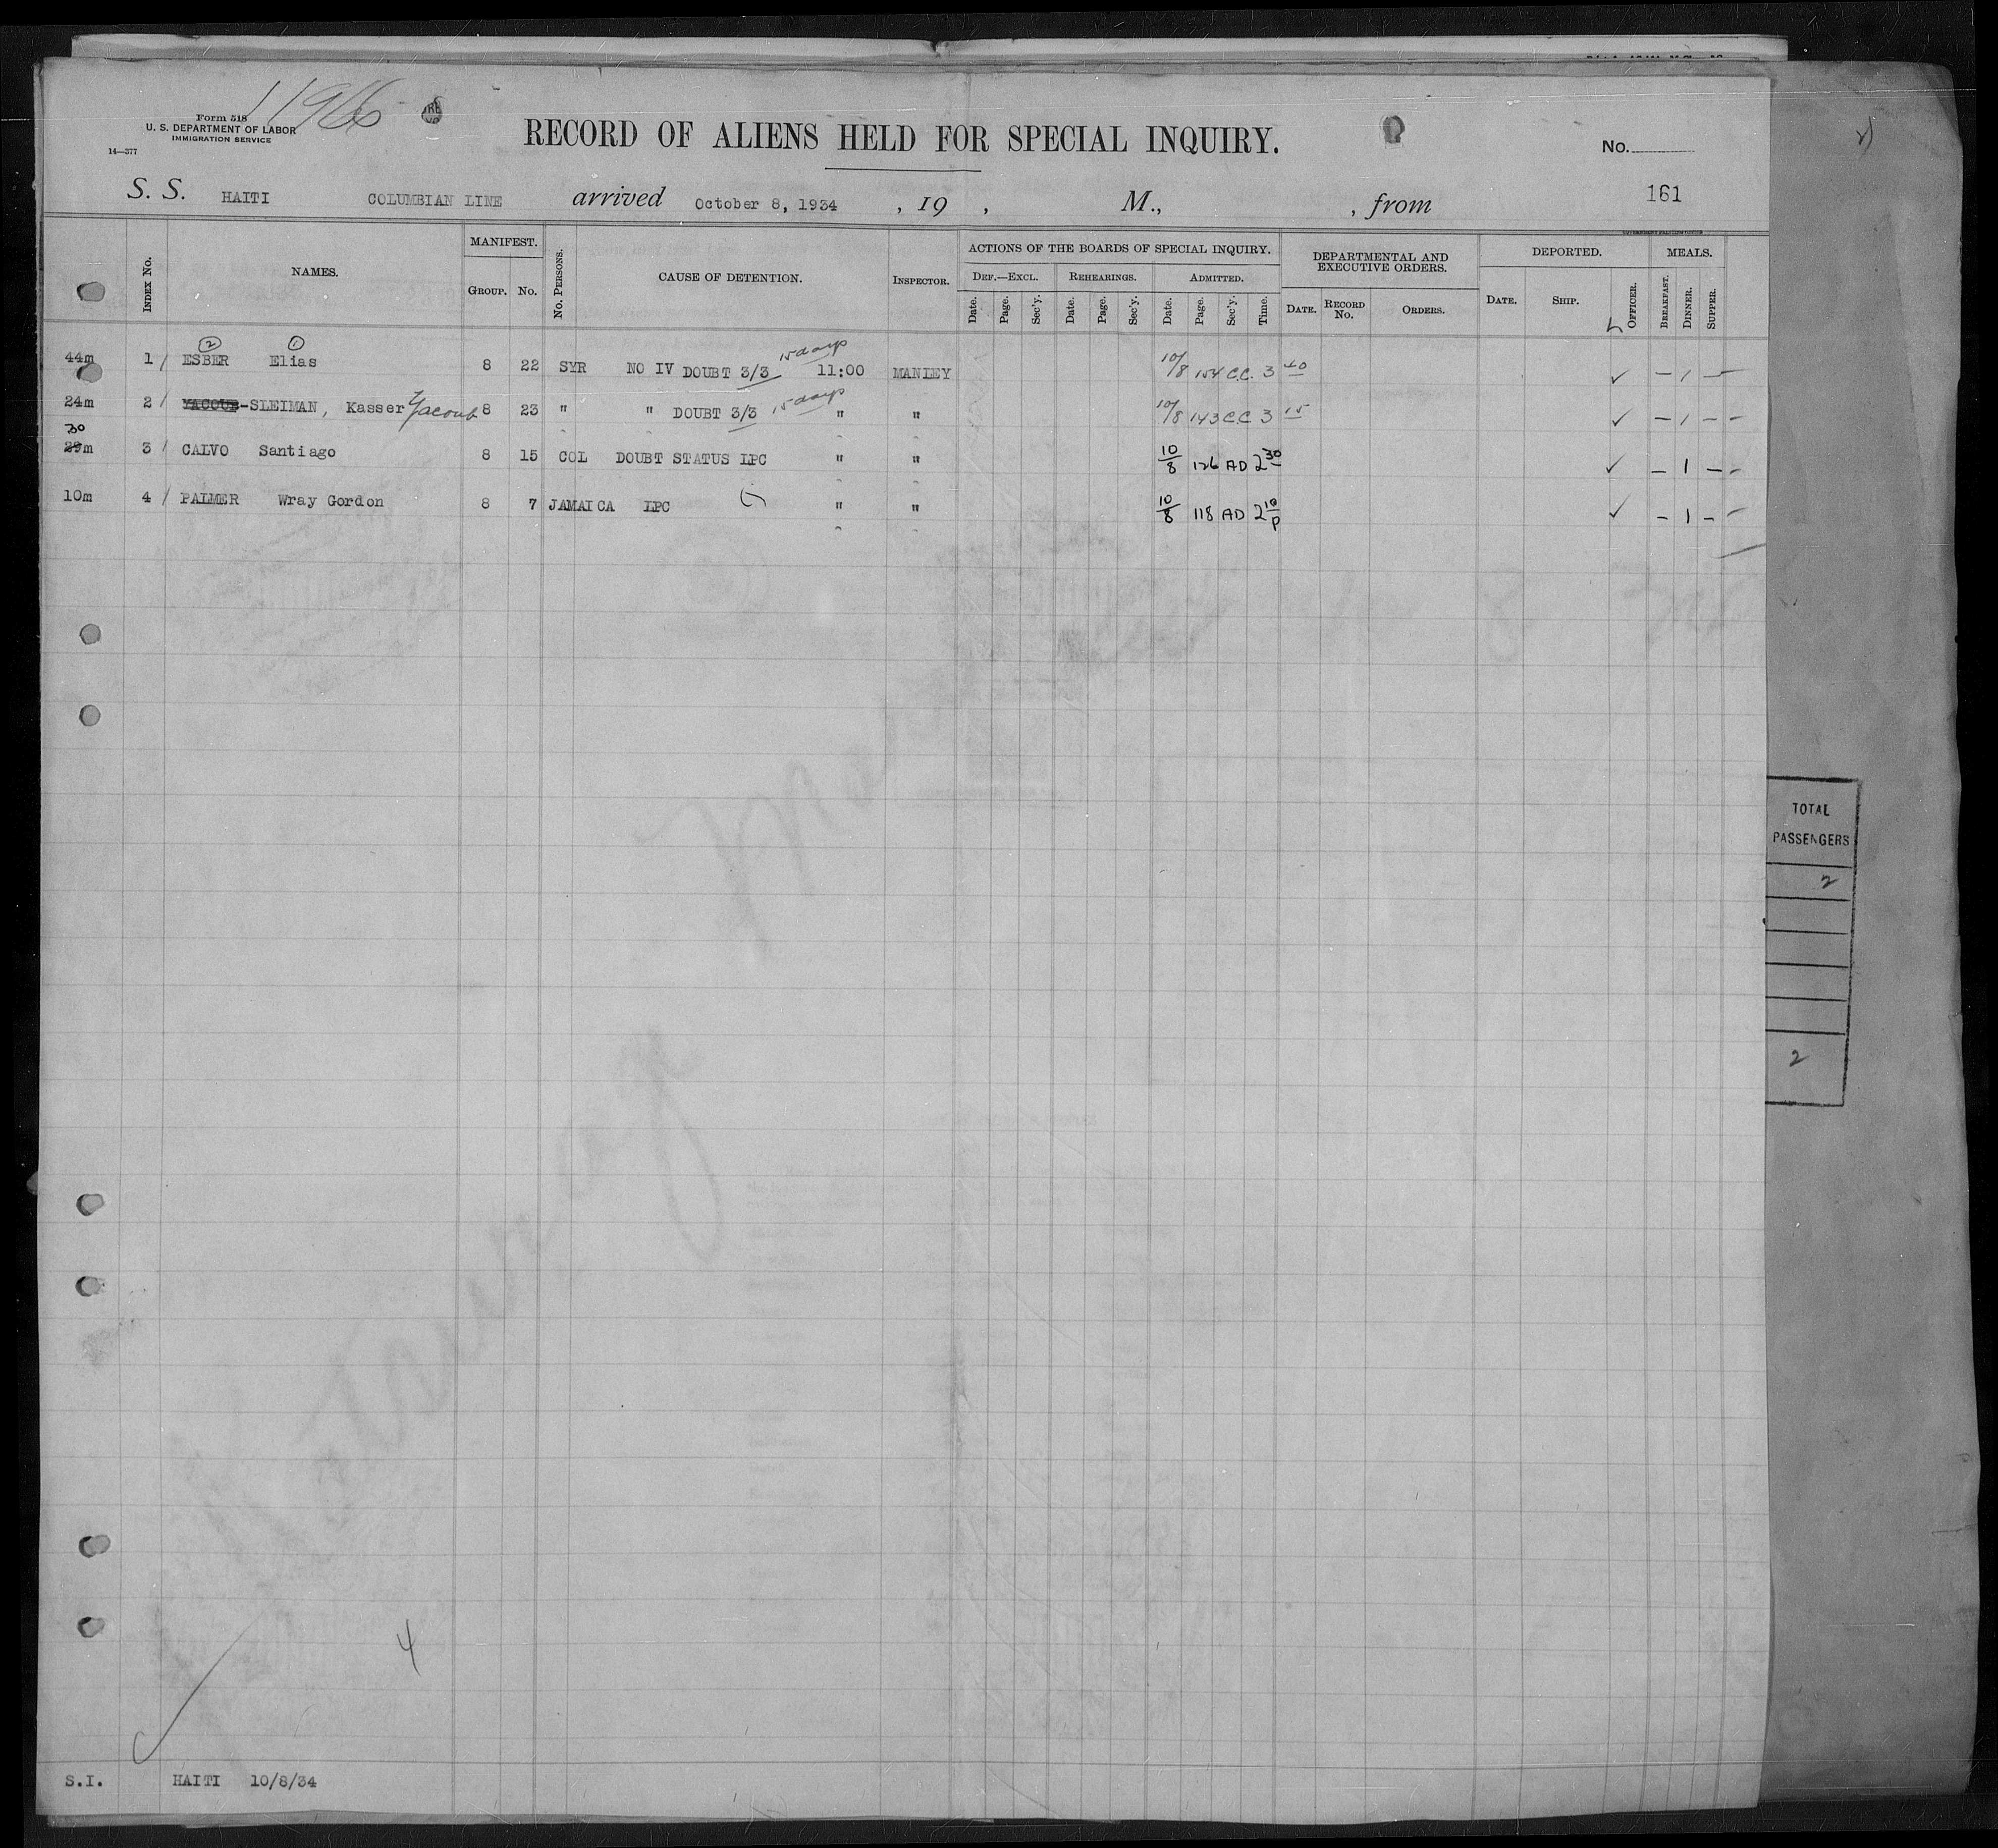 11966
Form 518
U. S. DEPARTMENT OF LABOR
IMMIGRATION SERVICE
14—377
RECORD OF ALIENS HELD FOR SPECIAL INQUIRY.
No.
161
S. S. HAITI COLUMBIAN LINE arrived October 8, 1934 , 19 , M., , from
INDEX No. NAMES. MANIFEST. GROUP. No. No. PERSONS. CAUSE OF DETENTION. INSPECTOR. ACTIONS OF THE BOARDS OF SPECIAL INQUIRY. DEPARTMENTAL AND EXECUTIVE ORDERS. DEPORTED. MEALS.
DEF.—EXCL. REHEARINGS. ADMITTED.
Date. Page. Sec'y. Date. Page. Sec'y. Date. Page. Sec'y. Time. DATE. RECORD No. ORDERS. DATE. SHIP. OFFICER. BREAKFAST. DINNER. SUPPER.
2 1
15 days
44m 1/ ESBER Elias 8 22 SYR NO IV DOUBT 3/3 11:00 MANLEY 10/8 154 C.C. 3 40 ✓ – 1 –
24m 2/ YACOUB-SLEIMAN, Kasser Yacoub 8 23 " " DOUBT 3/3 15 days " " 10/8 143 C.C 3 15 ✓ – 1 – –
30
29m 3/ CALVO Santiago 8 15 COL DOUBT STATUS LPC " " 10/8 126 AD 2 30 ✓ – 1 – –
10m 4/ PALMER Wray Gordon 8 7 JAMAICA LPC " " 10/8 118 AD 2 10 P ✓ – 1 – –
TOTAL
PASSENGERS
2
2
4
S.I. HAITI 10/8/34